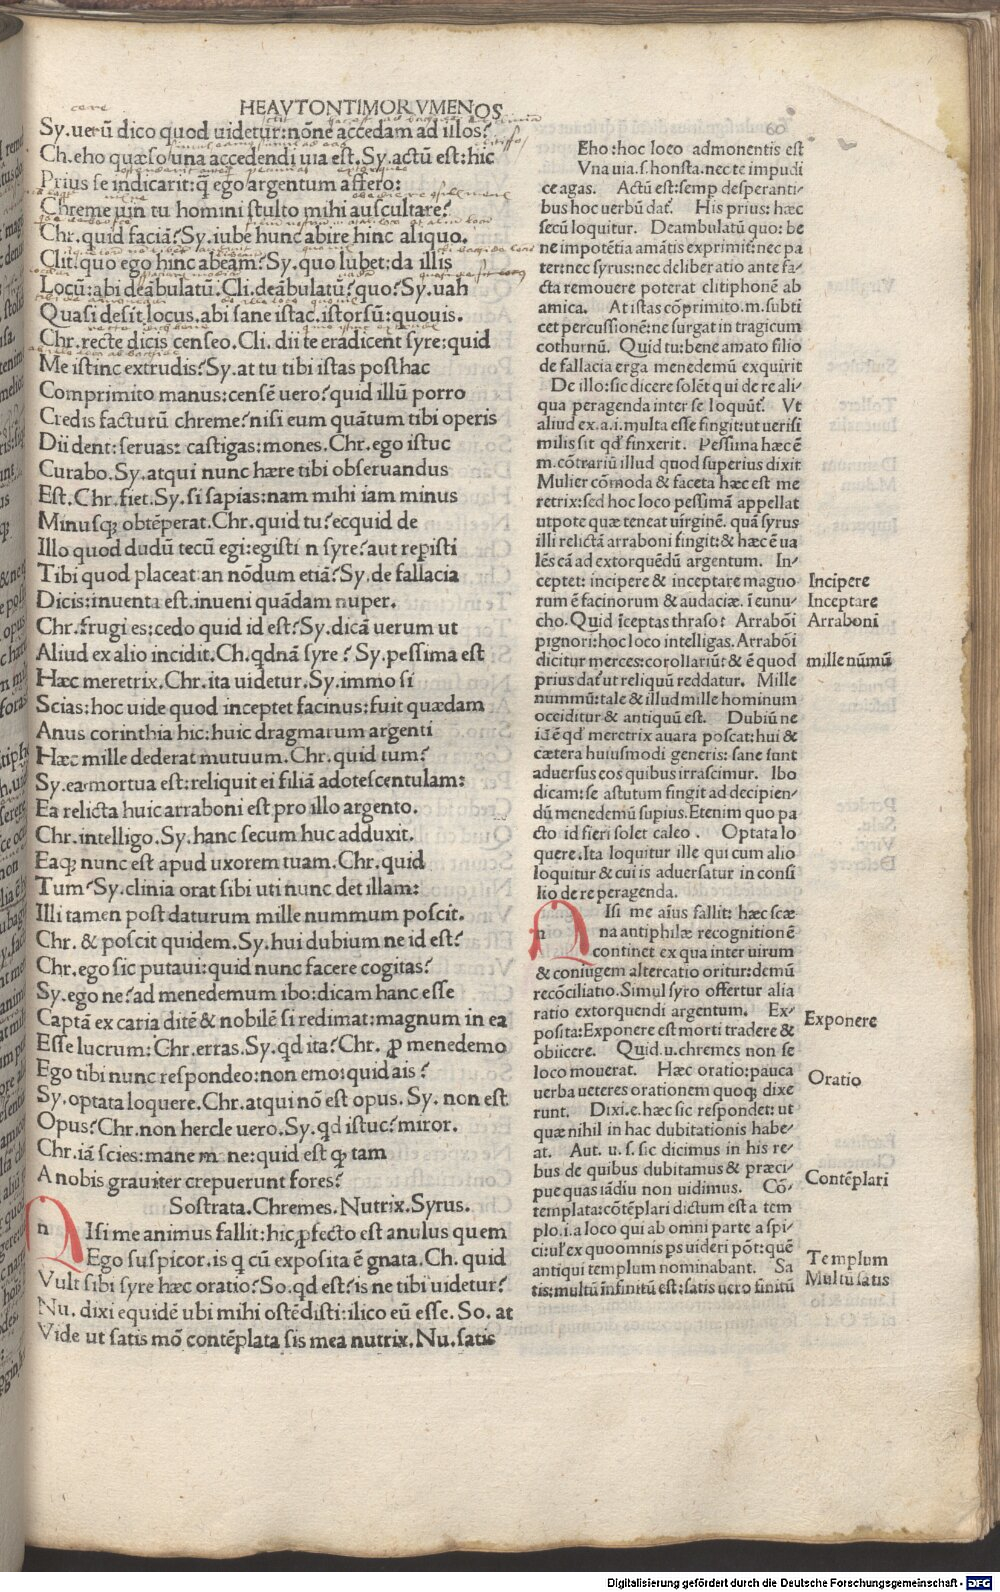 HEAVTONTIMORVMENOS
60
Sy. uerū dico quod uidetur: nōne accedam ad illos?
Ch. eho quæso una accedendi uia est. Sy. actū est: hic
Prius se indicarit: q̄ ego argentum affero:
Chreme uin tu homini stulto mihi auscultare?
Chr. quid faciā? Sy. iube hunc abire hinc aliquo.
Clit. quo ego hinc abeam? Sy. quo lubet: da illis
Locū: abi deābulatū. Cli. deābulatū? quo? Sy. uah
Quasi desit locus. abi sane istac. istorsū: quouis.
Chr. recte dicis censeo. Cli. dii te eradicent syre: quid
Me istinc extrudis? Sy. at tu tibi istas posthac
Comprimito manus: censē uero? quid illū porro
Credis facturū chreme? nisi eum quātum tibi operis
Dii dent: seruas: castigas: mones. Chr. ego istuc
Curabo. Sy. atqui nunc hære tibi obseruandus
Est. Chr. fiet. Sy. si sapias: nam mihi iam minus
Minusq; obtēperat. Chr. quid tu? ecquid de
Illo quod dudū tecū egi: egisti n syre? aut repisti
Tibi quod placeat: an nōdum etiā? Sy. de fallacia
Dicis: inuenta est. inueni quādam nuper.
Chr. frugi es: cedo quid id est? Sy. dicā uerum ut
Aliud ex alio incidit. Ch. qdnā syre? Sy. pessima est
Hæc meretrix. Chr. ita uidetur. Sy. immo si
Scias: hoc uide quod inceptet facinus: fuit quædam
Anus corinthia hic: huic dragmarum argenti
Hæc mille dederat mutuum. Chr. quid tum?
Sy. ea mortua est: reliquit ei filiā adotescentulam:
Ea relicta huic arraboni est pro illo argento.
Chr. intelligo. Sy. hanc secum huc adduxit.
Eaq; nunc est apud uxorem tuam. Chr. quid
Tum? Sy. clinia orat sibi uti nunc det illam:
Illi tamen post daturum mille nummum poscit.
Chr. & poscit quidem. Sy. hui dubium ne id est?
Chr. ego sic putaui: quid nunc facere cogitas?
Sy. ego ne? ad menedemum ibo: dicam hanc esse
Captā ex caria ditē & nobilē si redimat: magnum in ea
Esse lucrum: Chr. erras. Sy. qd ita? Chr. ꝓ menedemo
Ego tibi nunc respondeo: non emo: quid ais?
Sy. optata loquere. Chr. atqui nō est opus. Sy. non est
Opus? Chr. non hercle uero. Sy. qd istuc? miror.
Chr. iā scies: mane m ne: quid est q̄ tam
A nobis grauiter crepuerunt fores?
Sostrata. Chremes. Nutrix. Syrus.
n Isi me animus fallit: hic ꝓfecto est anulus quem
Ego suspicor. is q cū exposita ē gnata. Ch. quid
Vult sibi syre hæc oratio? So. qd est? is ne tibi uidetur?
Nu. dixi equidē ubi mihi ostēdisti: ilico eū esse. So. at
Vide ut satis mō contēplata sis mea nutrix. Nu. satis
Eho: hoc loco admonentis est
Vna uia. s. honsta. nec te impudi
ce agas. Actū est: semp desperanti-
bus hoc uerbū dat̄. His prius: hæc
secū loquitur. Deambulatū quo: be
ne impotētia amātis exprimit: nec pa
ter: nec syrus: nec deliberatio ante fa-
cta remouere poterat clitiphonē ab
amica. At istas cōprimito. m. subti
cet percussionē: ne surgat in tragicum
cothurnū. Quid tu: bene amato filio
de fallacia erga menedemū exquirit
De illo: sic dicere solēt qui de re ali-
qua peragenda inter se loquūt̄. Vt
aliud ex. a. i. multa esse fingit: ut uerisi
milis sit qd̄ finxerit. Pessima hæc ē
m. cōtrariū illud quod superius dixit
Mulier cōmoda & faceta hæc est me
retrix: sed hoc loco pessimā appellat
utpote quæ teneat uirginē. quā syrus
illi relictā arraboni fingit: & hæc ē ua
lēs cā ad extorquēdū argentum. In-
ceptet: incipere & inceptare magno
rum ē facinorum & audaciæ. ī eunu-
cho. Quid īceptas thraso? Arrabōi
pignori: hoc loco intelligas. Arrabōi
dicitur merces: corollariūt & ē quod
prius dat̄ ut reliquū reddatur. Mille
nummū: tale & illud mille hominum
occiditur & antiquū est. Dubiū ne
id ē qd̄ meretrix auara poscat: hui &
cætera huiusmodi generis: sane sunt
aduersus eos quibus irrascimur. Ibo
dicam: se astutum fingit ad decipien-
dū menedemū supius. Etenim quo pa
cto id fieri solet caleo. Optata lo
quere. Ita loquitur ille qui cum alio
loquitur & cui is aduersatur in consi
lio de re peragenda.
n Isi me aīus fallit: hæc scæ
na antiphilæ recognitionē
continet ex qua inter uirum
& coniugem altercatio oritur: demū
recōciliatio. Simul syro offertur alia
ratio extorquendi argentum. Ex-
posita: Exponere est morti tradere &
obiicere. Quid. u. chremes non se
loco mouerat. Hæc oratio: pauca
uerba ueteres orationem quoq; dixe
runt. Dixi. e. hæc sic respondet: ut
quæ nihil in hac dubitationis habe-
at. Aut. u. s. sic dicimus in his re-
bus de quibus dubitamus & præci-
pue quas iādiu non uidimus. Cō-
templata: cōtēplari dictum est a tem
plo. i. a loco qui ab omni parte aspi-
ci: ul̄ ex quo omnis ps uideri pōt: quē
antiqui templum nominabant. Sa
tis: multū infinitū est: satis uero finitū
Incipere
Inceptare
Arraboni
mille nūmū
Exponere
Oratio
Contēplari
Templum
Multū satis
Digitalisierung gefördert durch die Deutsche Forschungsgemeinschaft - DFG